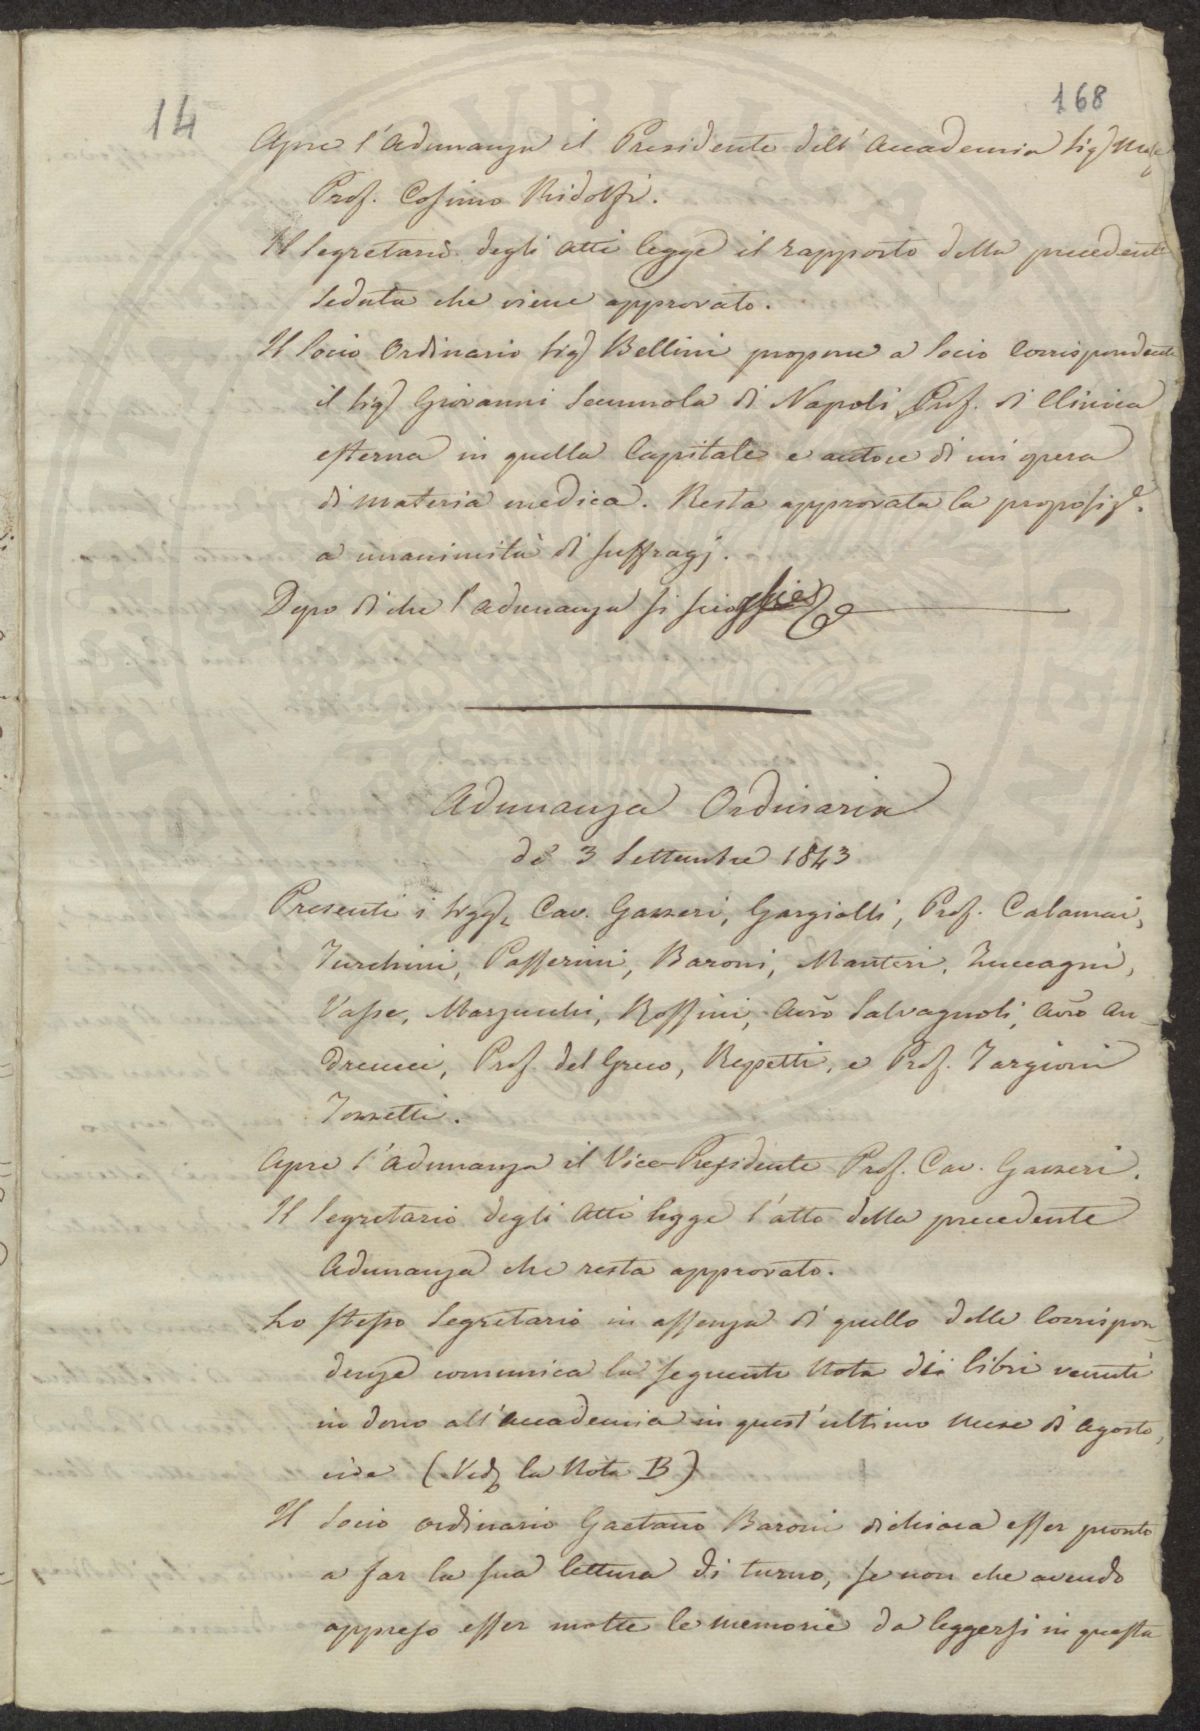 14
168
Apre l'Adunanza il Presidente dell'Accademia Sig.
Prof. Cosimo Ridolfi.
Il Segretario degli Atti legge il rapporto della precedente
Seduta che viene approvato.
Il Socio Ordinario Sig. Bellini propone a Socio Corrispondente
il Sig. Giovanni Semmola di Napoli Prof. di Clinica
esterna in quella Capitale e autore di un'opera
di materia medica. Resta approvata la proposiz.e
a unanimità di suffragj.
Dopo di che l'adunanza si scioglie
Adunanza Ordinaria
de' 3 Settembre 1843
Presenti i Sigg. Cav. Gazzeri, Gargiolli, Prof. Calamai,
Turchini, Passerini, Baroni, Manteri, Zuccagni,
Vasse, Marzucchi, Roffini, Avv.o Salvagnoli, Avv.o An-
dreucci, Prof. del Greco, Repetti, e Prof. Targioni
Tozzetti.
Apre l'Adunanza il Vice-Presidente Prof. Cav. Gazzeri.
Il Segretario degli Atti legge l'atto della precedente
Adunanza che resta approvato.
Lo stesso Segretario in assenza di quello delle Corrispon-
denze comunica la seguente Nota dei libri venuti
in dono all'Accademia in quest'ultimo Mese di Agosto,
cioè (Ved. la Nota B)
Il Socio ordinario Gaetano Baroni dichiara esser pronto
a far la sua lettura di turno, se non che avendo
appreso esser molte le memorie da leggersi in questa